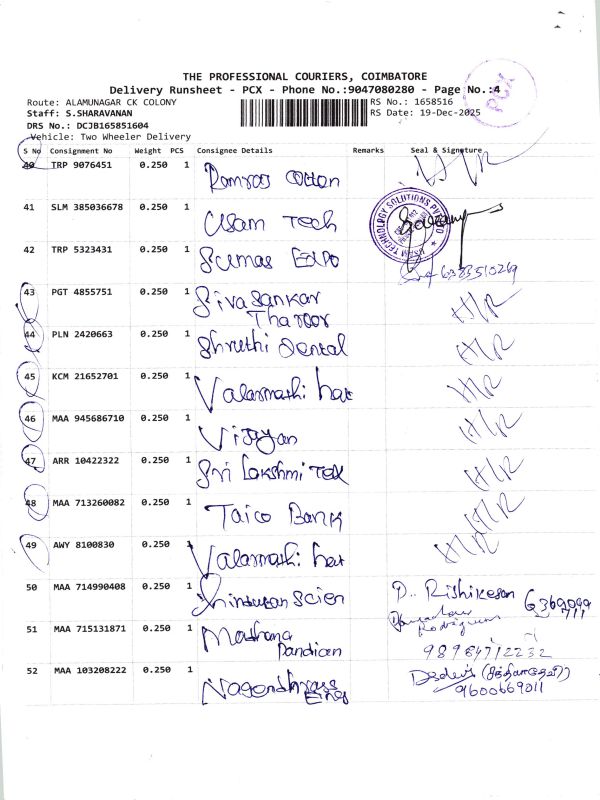 THE PROFESSIONAL COURIERS, COIMBATORE
Delivery Runsheet - PCX - Phone No.:9047080280 - Page No.:4
PCX
Route: ALAMUNAGAR CK COLONY RS No.: 1658516
Staff: S.SHARAVANAN RS Date: 19-Dec-2025
DRS No.: DCJB165851604
Vehicle: Two Wheeler Delivery
S No Consignment No Weight PCS Consignee Details Remarks Seal & Signature
40 TRP 9076451 0.250 1 Ramraj Cotton H/R
41 SLM 385036678 0.250 1 Usam Tech
TECHNOLOGY SOLUTIONS
42 TRP 5323431 0.250 1 Sumas Expo 6383510269
43 PGT 4855751 0.250 1 Siva Sankar H/R
Tharoor
44 PLN 2420663 0.250 1 Shruthi Dental H/R
45 KCM 21652701 0.250 1 Valarmathi H/R
46 MAA 945686710 0.250 1 Vijayan H/R
47 ARR 10422322 0.250 1 Sri Lakshmi Tex H/R
48 MAA 713260082 0.250 1 Taico Bank H/R
49 AWY 8100830 0.250 1 Valarmathi H/R
50 MAA 714990408 0.250 1 Hindustan Scien D. Rishikesan
51 MAA 715131871 0.250 1 Mathana
Pandian
52 MAA 103208222 0.250 1 9600669011